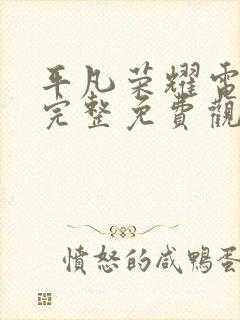 平凡榮耀電
完整免費觀
憤怒的咸鴨蛋